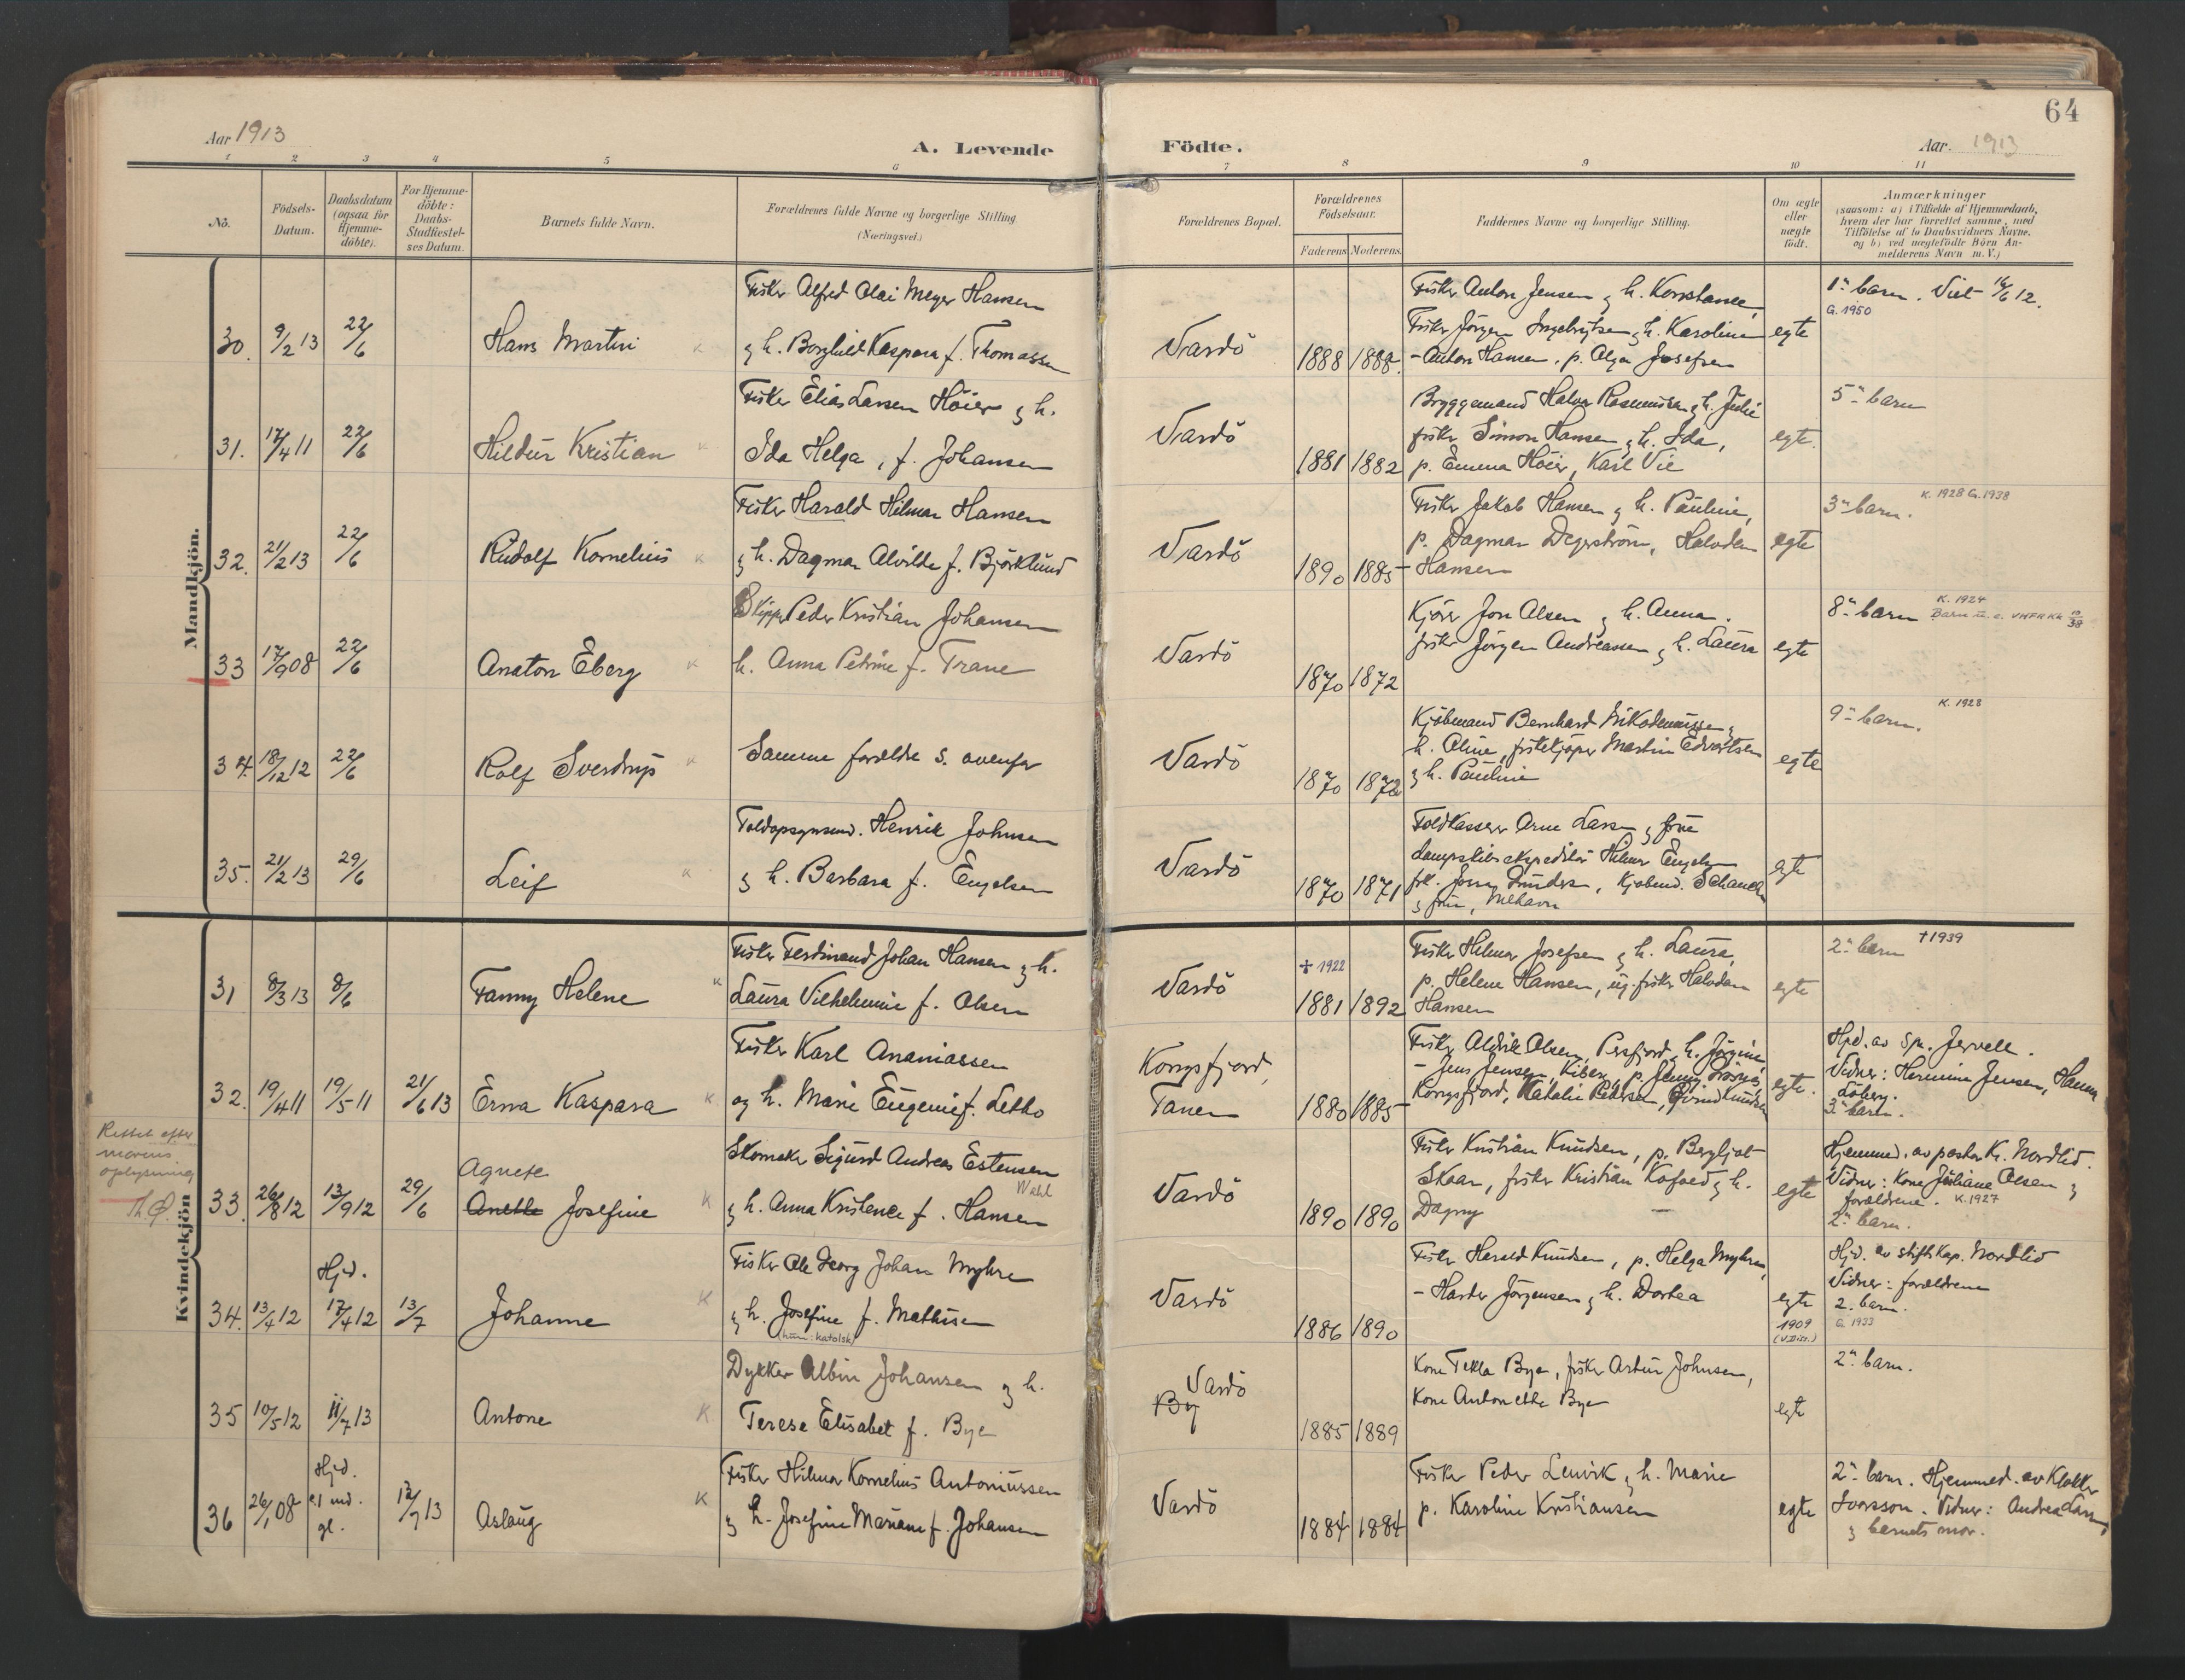 64
Aar 1913
A. Levende Födte.
Aar. 1913
1 2 3 4 5 6 7 8 9 10 11
No.
Födsels-Datum.
Daabsdatum (ogsaa for Hjemme-döbte).
For Hjemme-döbte: Daabs-Stadfæstel-ses Datum.
Barnets fulde Navn.
Forældrenes fulde Navne og borgerlige Stilling.
(Næringsvei.)
Forældrenes Bopæl.
Forældrenes Födselsaar.
Faderens Moderens.
Faddernes Navne og borgerlige Stilling.
Om ægte eller uægte födt.
Anmærkninger
(saasom: a) i Tilfælde af Hjemmedaab,
hvem der har forrettet samme, med
Tilföielse af to Daabsvidners Navne.
og b) ved uægtefödte Börn An-
melderens Navn m. V.)
Mandkjön.
30. 9/2 13 22/6
Hans Martin
Fisker Alfred Olai Meyer Hansen
g h. Borghild Kaspara f. Thomassen
Vardö
1888 1888.
Fisker Anton Jensen g h. Konstance,
Fisker Jörgen Ingebrigtsen g h. Karoline
- Anton Hansen, p. Olga Josefsen
egte
1ste barn. Viet 16/6 12.
G. 1950
31. 17/4 11 22/6
Hildur Kristian
Fisker Elias Larsen Höier g h.
Ida Helga, f. Johansen
Vardö
1881 1882
Bryggemand Halvor Rasmussen g h. Julie
fisker Simon Hansen g h. Ida,
p. Emma Höier, Karl Vie
egte.
5te barn
32. 21/2 13 22/6
Rudolf Kornelius
Fisker Harald Hilmar Hansen
g h. Dagmar Alvilde f. Björklund
Vardö
1890 1885
Fisker Jakob Hansen g h. Pauline,
p. Dagmar Degerström, Halvdan
Hansen
egte
3die barn.
K. 1928 G. 1938
33 17/9 08 22/6
Anaton Eberg
Skipper Peder Kristian Johansen
h. Anna Petrine f. Trane
Vardö
1870 1872
Kjörer Jon Olsen g h. Anna.
fisker Jörgen Andreassen g h. Laura
egte
8de barn
K. 1924
34. 18/12 12 22/6
Rolf Sverdrup
Samme forældre s. ovenfor
Vardö
1870 1872
Kjöbmand Bernhard Nikodemussen g
h. Aline, fiskekjöper Martin Edvartsen
g h. Pauline
egte
9de barn.
K. 1928
35. 21/2 13 29/6
Leif
Toldopsynsmd. Henrik Johnsen
g h. Barbara f. Engelsen
Vardö
1870 1871
Toldkasserer Arne Larsen g frue
Dampskibsekspeditör Hilmar Engelsen
frk. Jenny, Kjöbmd. Schanche
g frue, Mehavn
egte
Kvindekjön
31 8/3 13 8/6
Fanny Helene
Fisker Ferdinand Johan Hansen g h.
Laura Vilhelmine f. Olsen
Vardö
✝ 1922
1881 1892
Fisker Hilmar Josefsen g h. Laura,
p. Helene Hansen, ug. fisker Halvdan
Hansen
egte
2det barn
✝1939
32. 19/4 11 19/5 11 21/6 13
Erna Kaspara
Fisker Karl Ananiassen
og h. Marie Eugenie f. Letto
Kongsfjord,
Tanen
1880 1885
Fisker Aldrik Olsen, Persfjord g h. Jörgine,
- Jens Jensen, Kiberg, p. Jenny
Kongsfjord, Natalie Pedersen, Öivind Knudsen
egte.
Hjd. av Sp. Jervell.
Vidner: Hermine Jensen, Hanna
Löberg.
3die barn.
Rettet efter
morens
oplysning
Th. Ø.
33. 26/8 12 13/9 12 29/6
Agnete
Anette Josefine
Skomaker Sigurd Andreas Estensen
Wahl
g h. Anna Kristence f. Hansen
Vardö
1890 1890
Fisker Kristian Knudsen, p. Bergljot
Skaar, fisker Kristian Kofoed g h.
Dagny
egte
Hjemmed. av pastor Kr. Nordlid.
Vidner: Kone Juliane Olsen g
forældrene. K. 1927
2det barn.
34. 13/4 12 Hjd. 17/4 12 13/7
Johanne
Fisker Ole Georg Johan Myhre
g h. Josefine f. Mathisen
(hun: katolsk)
Vardö
1886 1890
Fisker Harald Knudsen, p. Helga Myhre,
- Harder Jörgensen g h. Dortea
egte
1909
(v. Diss.)
Hjd. av stiftskap. Nordlid
Vidner: forældrene
2. barn.
G. 1933
35 10/5 12 11/7 13
Antone
Dykker Albin Johansen g h.
Terese Elisabet f. Bye
Vardö
By
1885 1889
Kone Tekla Bye, fisker Artur Johnsen,
Kone Antonette Bye
egte
2det barn.
36 26/1 08 Hjd. 12/7 13
Aslaug
Fisker Hilmar Kornelius Antoniussen
g h. Josefine Mariane f. Johansen
Vardö
1884 1884
Fisker Peder Lenvik g h. Marie
p. Karoline Kristiansen
egte
2det barn. Hjemmed. av Klokker
Ivarsson. Vidner: Andrea Larsen,
g barnets mor.